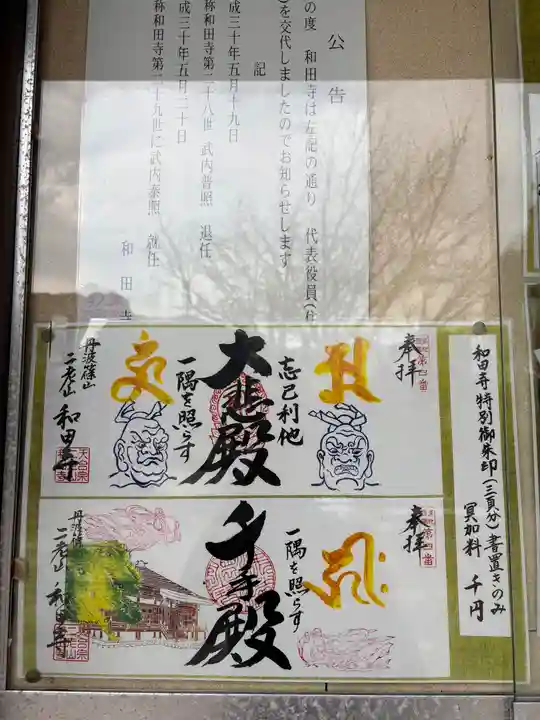 公告
の度 和田寺は左記の通り 代表役員(
を交代しましたのでお知らせします
記
成三十年五月十九日
称和田寺第二十八世 武内普照 退任
成三十年五月二十日
称和田寺第二十九世に武内泰照 就任
和田寺
和田寺特別御朱印(三頁分)書置きのみ
冥加料 千円
奉拝
忘己利他
大悲殿
一隅を照らす
丹波篠山
二老山 和田寺
奉拝
一隅を照らす
千手殿
丹波篠山
二老山 和田寺